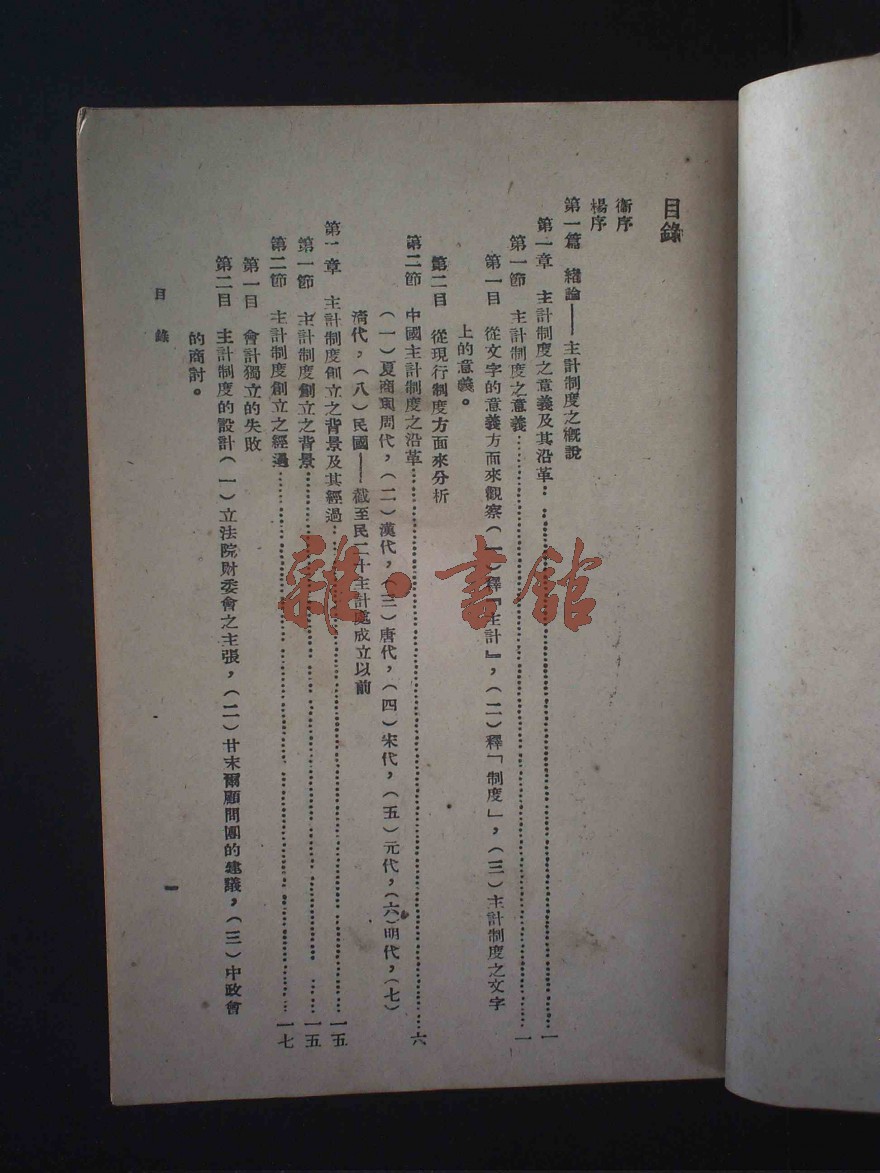 目錄
衞序
楊序
第一篇 緒論——主計制度之概說
第一章 主計制度之意義及其沿革……一
第一節 主計制度之意義……一
第一目 從文字的意義方面來觀察(一)釋『主計』,(二)釋「制度」,(三)主計制度之文字
上的意義。
第二目 從現行制度方面來分析
第二節 中國主計制度之沿革……六
(一)夏商周代,(二)漢代,(三)唐代,(四)宋代,(五)元代,(六)明代,(七)
淸代,(八)民國——截至民二十主計處成立以前
第二章 主計制度創立之背景及其經過……一五
第一節 主計制度創立之背景……一五
第二節 主計制度創立之經過……一七
第一目 會計獨立的失敗
第二目 主計制度的設計(一)立法院財委會之主張,(二)甘末爾顧問團的建議,(三)中政會
的商討。
目錄
一
雜·書館